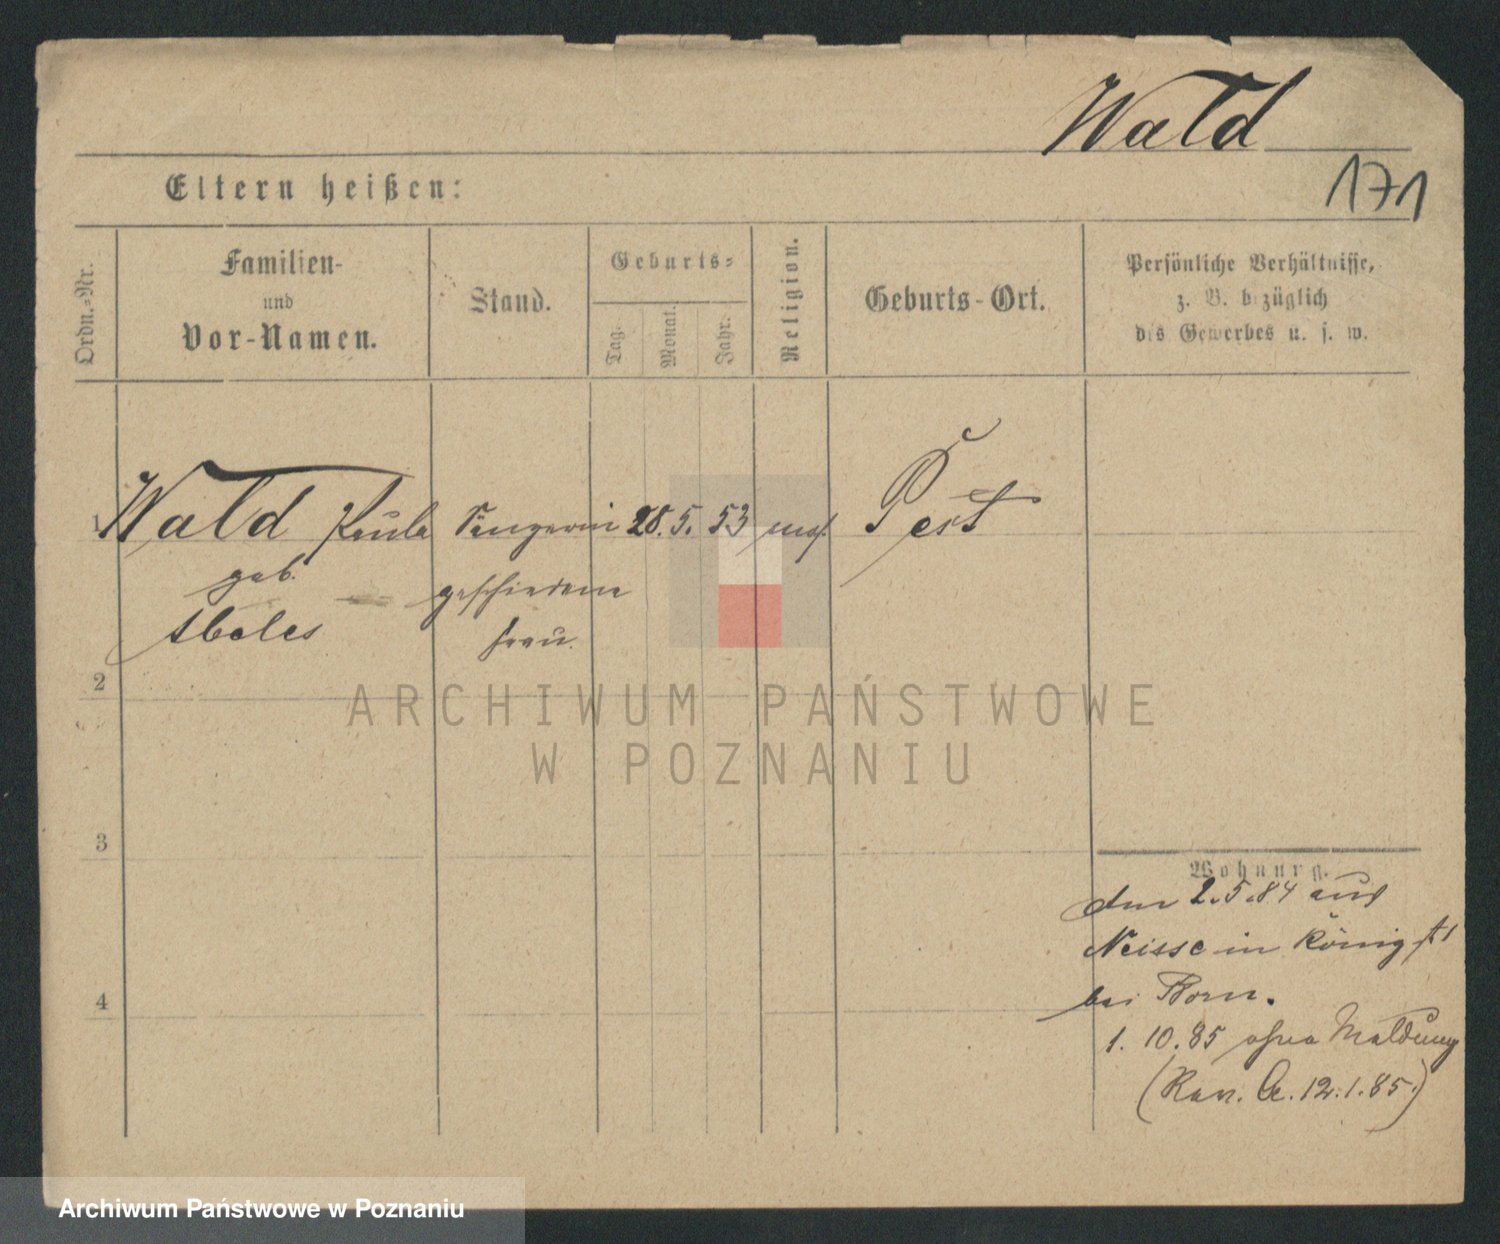 Wald
171
Eltern heißen:
Ordn.-Nr.
Familien-
und
Vor-Namen.
Stand.
Geburts-
Tag.
Monat.
Jahr.
Religion.
Geburts-Ort.
Persönliche Verhältnisse,
z. B. bezüglich
des Gewerbes u. s. w.
1 Wald Paula Sängerin 28. 5. 53 mos. Pest
geb. geschiedene
Abeles Frau.
2
ARCHIWUM PAŃSTWOWE
W POZNANIU
3
Wohnung.
den 2.5.84 aus
Neisse in Königst 1
bei Born.
4
1. 10. 85 ohne Meldung
(Rev. 12.1.85.)
Archiwum Państwowe w Poznaniu